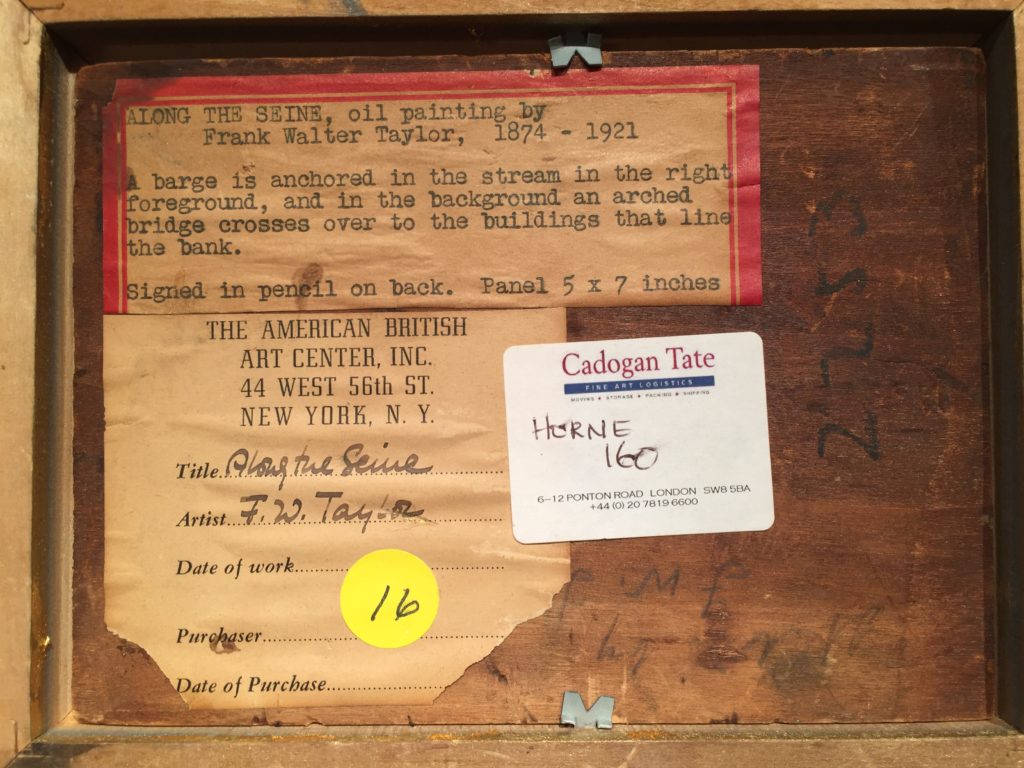 ALONG THE SEINE, oil painting by
Frank Walter Taylor, 1874 - 1921
A barge is anchored in the stream in the right
foreground, and in the background an arched
bridge crosses over to the buildings that line
the bank.
Signed in pencil on back. Panel 5 x 7 inches
THE AMERICAN BRITISH
ART CENTER, INC.
44 WEST 56th ST.
NEW YORK, N. Y.
Title Along the Seine
Artist F. W. Taylor
Date of work
16
Purchaser
Date of Purchase
Cadogan Tate
FINE ART LOGISTICS
MOVING ♦ STORAGE ♦ PACKING ♦ SHIPPING
HORNE
160
6–12 PONTON ROAD LONDON SW8 5BA
+44 (0) 20 7819 6600
2253